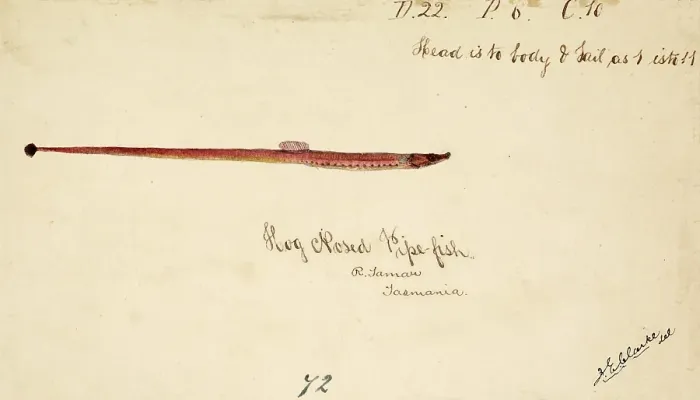 D.22. P. 6. C.10
Head is to body & Tail as 1 is to 11
Hog Nosed Pipe-fish.
R. Tamar
Tasmania.
J.E. Clarke del
72